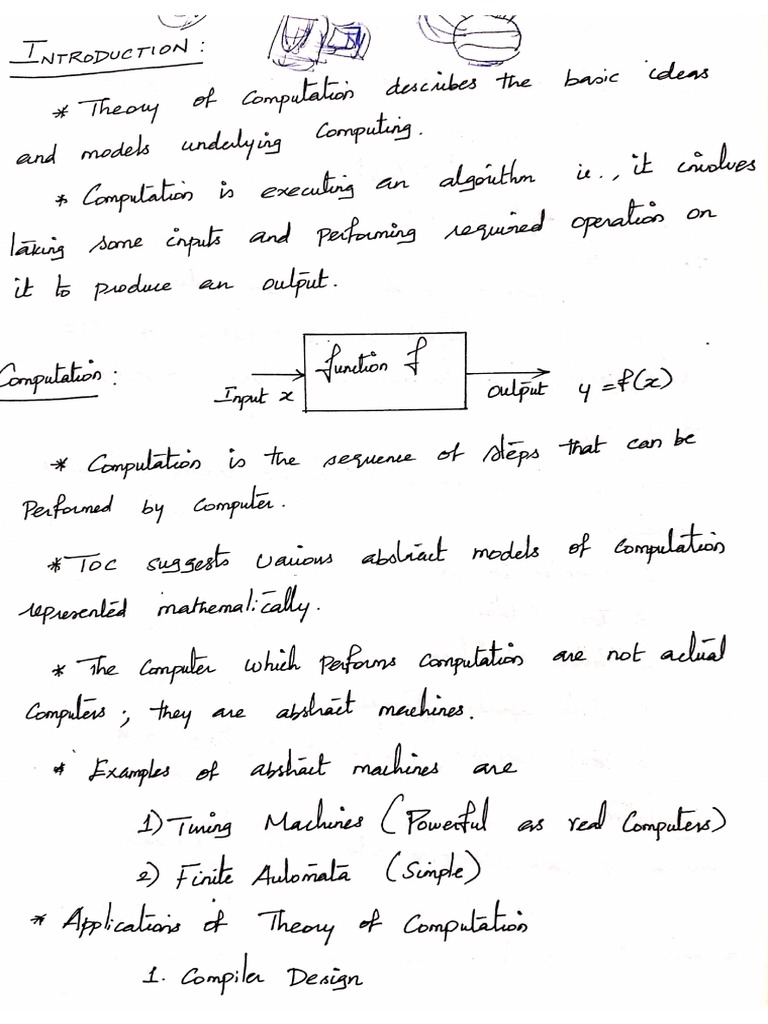 INTRODUCTION :
* Theory of Computation describes the basic ideas
and models underlying Computing.
* Computation is executing an algorithm ie., it involves
taking some inputs and performing required operation on
it to produce an output.
Computation :
function f
Input x
output y = f(x)
* Computation is the sequence of steps that can be
Performed by Computer.
* TOC suggests various abstract models of Computation
represented mathematically.
* The Computer which performs Computation are not actual
Computers ; they are abstract machines.
* Examples of abstract machines are
1) Turing Machines (Powerful as real Computers)
2) Finite Automata (Simple)
* Applications of Theory of Computation
1. Compiler Design